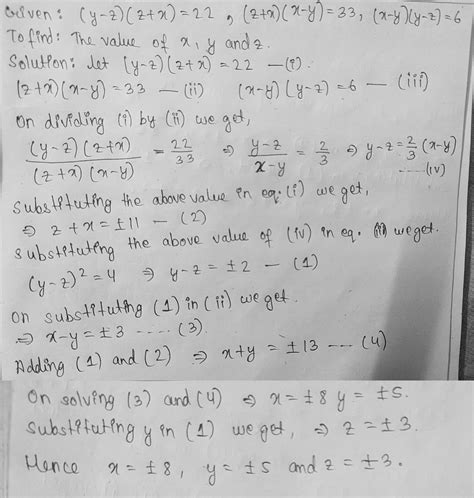 Given: (y-z)(z+x)=22 , (z+x)(x-y)=33, (x-y)(y-z)=6
To find: The value of x, y and z.
Solution: let (y-z)(z+x)=22 —(i)
(z+x)(x-y)=33 —(ii) (x-y)(y-z)=6 —(iii)
On dividing (i) by (ii) we get,
(y-z)(z+x)/(z+x)(x-y) = 22/33 ⇒ y-z/x-y = 2/3 ⇒ y-z=2/3(x-y)
----(iv)
substituting the above value in eq.(i) we get,
⇒ z+x=±11 —(2)
substituting the above value of (iv) in eq. (iii) we get.
(y-z)²=4 ⇒ y-z=±2 —(1)
on substituting (1) in (ii) we get.
⇒ x-y=±3 ----(3).
Adding (1) and (2) ⇒ x+y=±13 ---(4)
On solving (3) and (4) ⇒ x=±8 y=±5.
Substituting y in (1) we get, ⇒ z=±3.
Hence x=±8, y=±5 and z=±3.